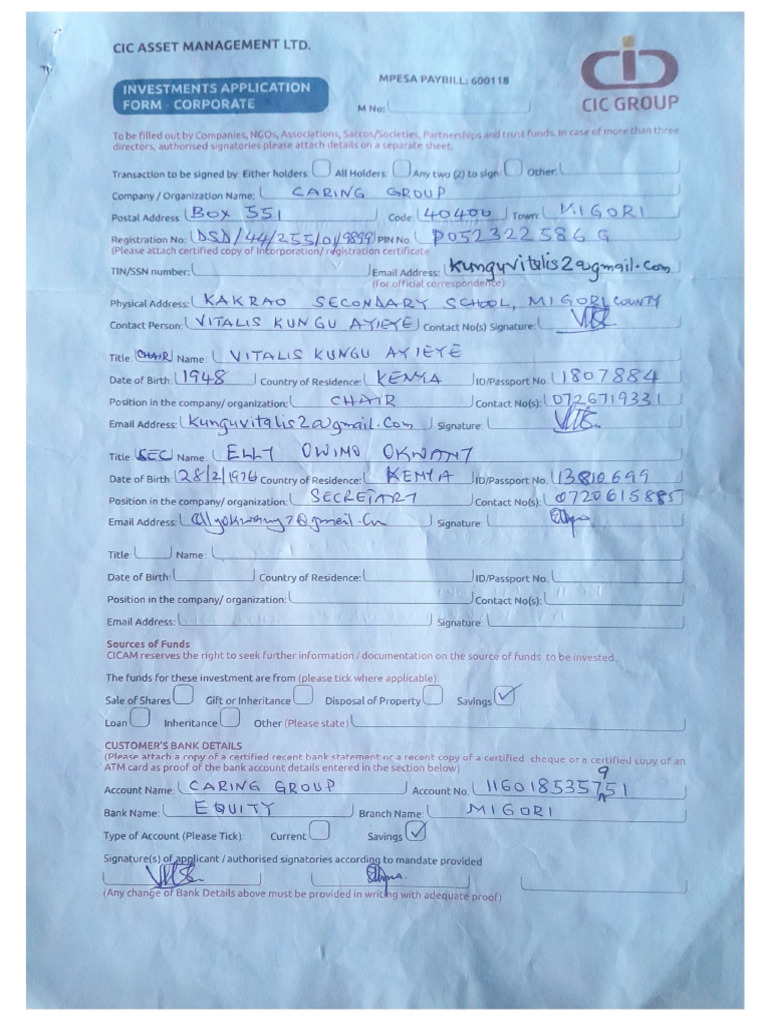 CIC ASSET MANAGEMENT LTD.
CIC GROUP
INVESTMENTS APPLICATION FORM - CORPORATE
MPESA PAYBILL: 600118
M No:
To be filled out by Companies, NGOs, Associations, Saccos/Societies, Partnerships and trust funds. In case of more than three
directors, authorised signatories please attach details on a separate sheet.
Transaction to be signed by Either holders: All Holders: Any two (2) to sign: Other:
Company / Organization Name: CARING GROUP
Postal Address BOX 551 Code 40400 Town: MIGORI
Registration No: DSD/44/255/01/9899 PIN No. P052322586G
(Please attach certified copy of Incorporation/ registration certificate
TIN/SSN number: Email Address: kunguvitalis2@gmail.com
(for official correspondence)
Physical Address: KAKRAO SECONDARY SCHOOL, MIGORI COUNTY
Contact Person: VITALIS KUNGU AYIEYE Contact No(s) Signature:
Title CHAIR Name: VITALIS KUNGU AYIEYE
Date of Birth 1948 Country of Residence: KENYA ID/Passport No. 1807884
Position in the company/ organization: CHAIR Contact No(s): 0726719331
Email Address: kunguvitalis2@gmail.com Signature:
Title SEC Name ELLY OWINO OKWANY
Date of Birth 28/2/1976 Country of Residence: KENYA ID/Passport No. 13810699
Position in the company/ organization: SECRETARY Contact No(s): 0720615885
Email Address: Signature
Title: Name:
Date of Birth: Country of Residence: ID/Passport No.
Position in the company/ organization: Contact No(s):
Email Address: Signature
Sources of Funds
CICAM reserves the right to seek further information / documentation on the source of funds to be invested.
The funds for these investment are from (please tick where applicable):
Sale of Shares Gift or Inheritance Disposal of Property Savings ✓
Loan Inheritance Other (Please state)
CUSTOMER'S BANK DETAILS
(Please attach a copy of a certified recent bank statement or a recent copy of a certified cheque or a certified copy of an
ATM card as proof of the bank account details entered in the section below)
Account Name: CARING GROUP Account No. 1160185357951
Bank Name: EQUITY Branch Name: MIGORI
Type of Account (Please Tick): Current Savings ✓
Signature(s) of applicant / authorised signatories according to mandate provided
(Any change of Bank Details above must be provided in writing with adequate proof)